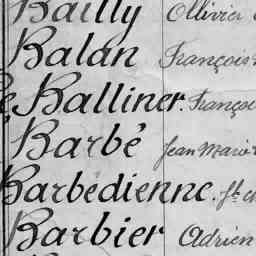 Bailly Ollivier
Balan François
Balliner. Françoi
Barbé Jean Marie
Barbédienne.
Barbier Adrien